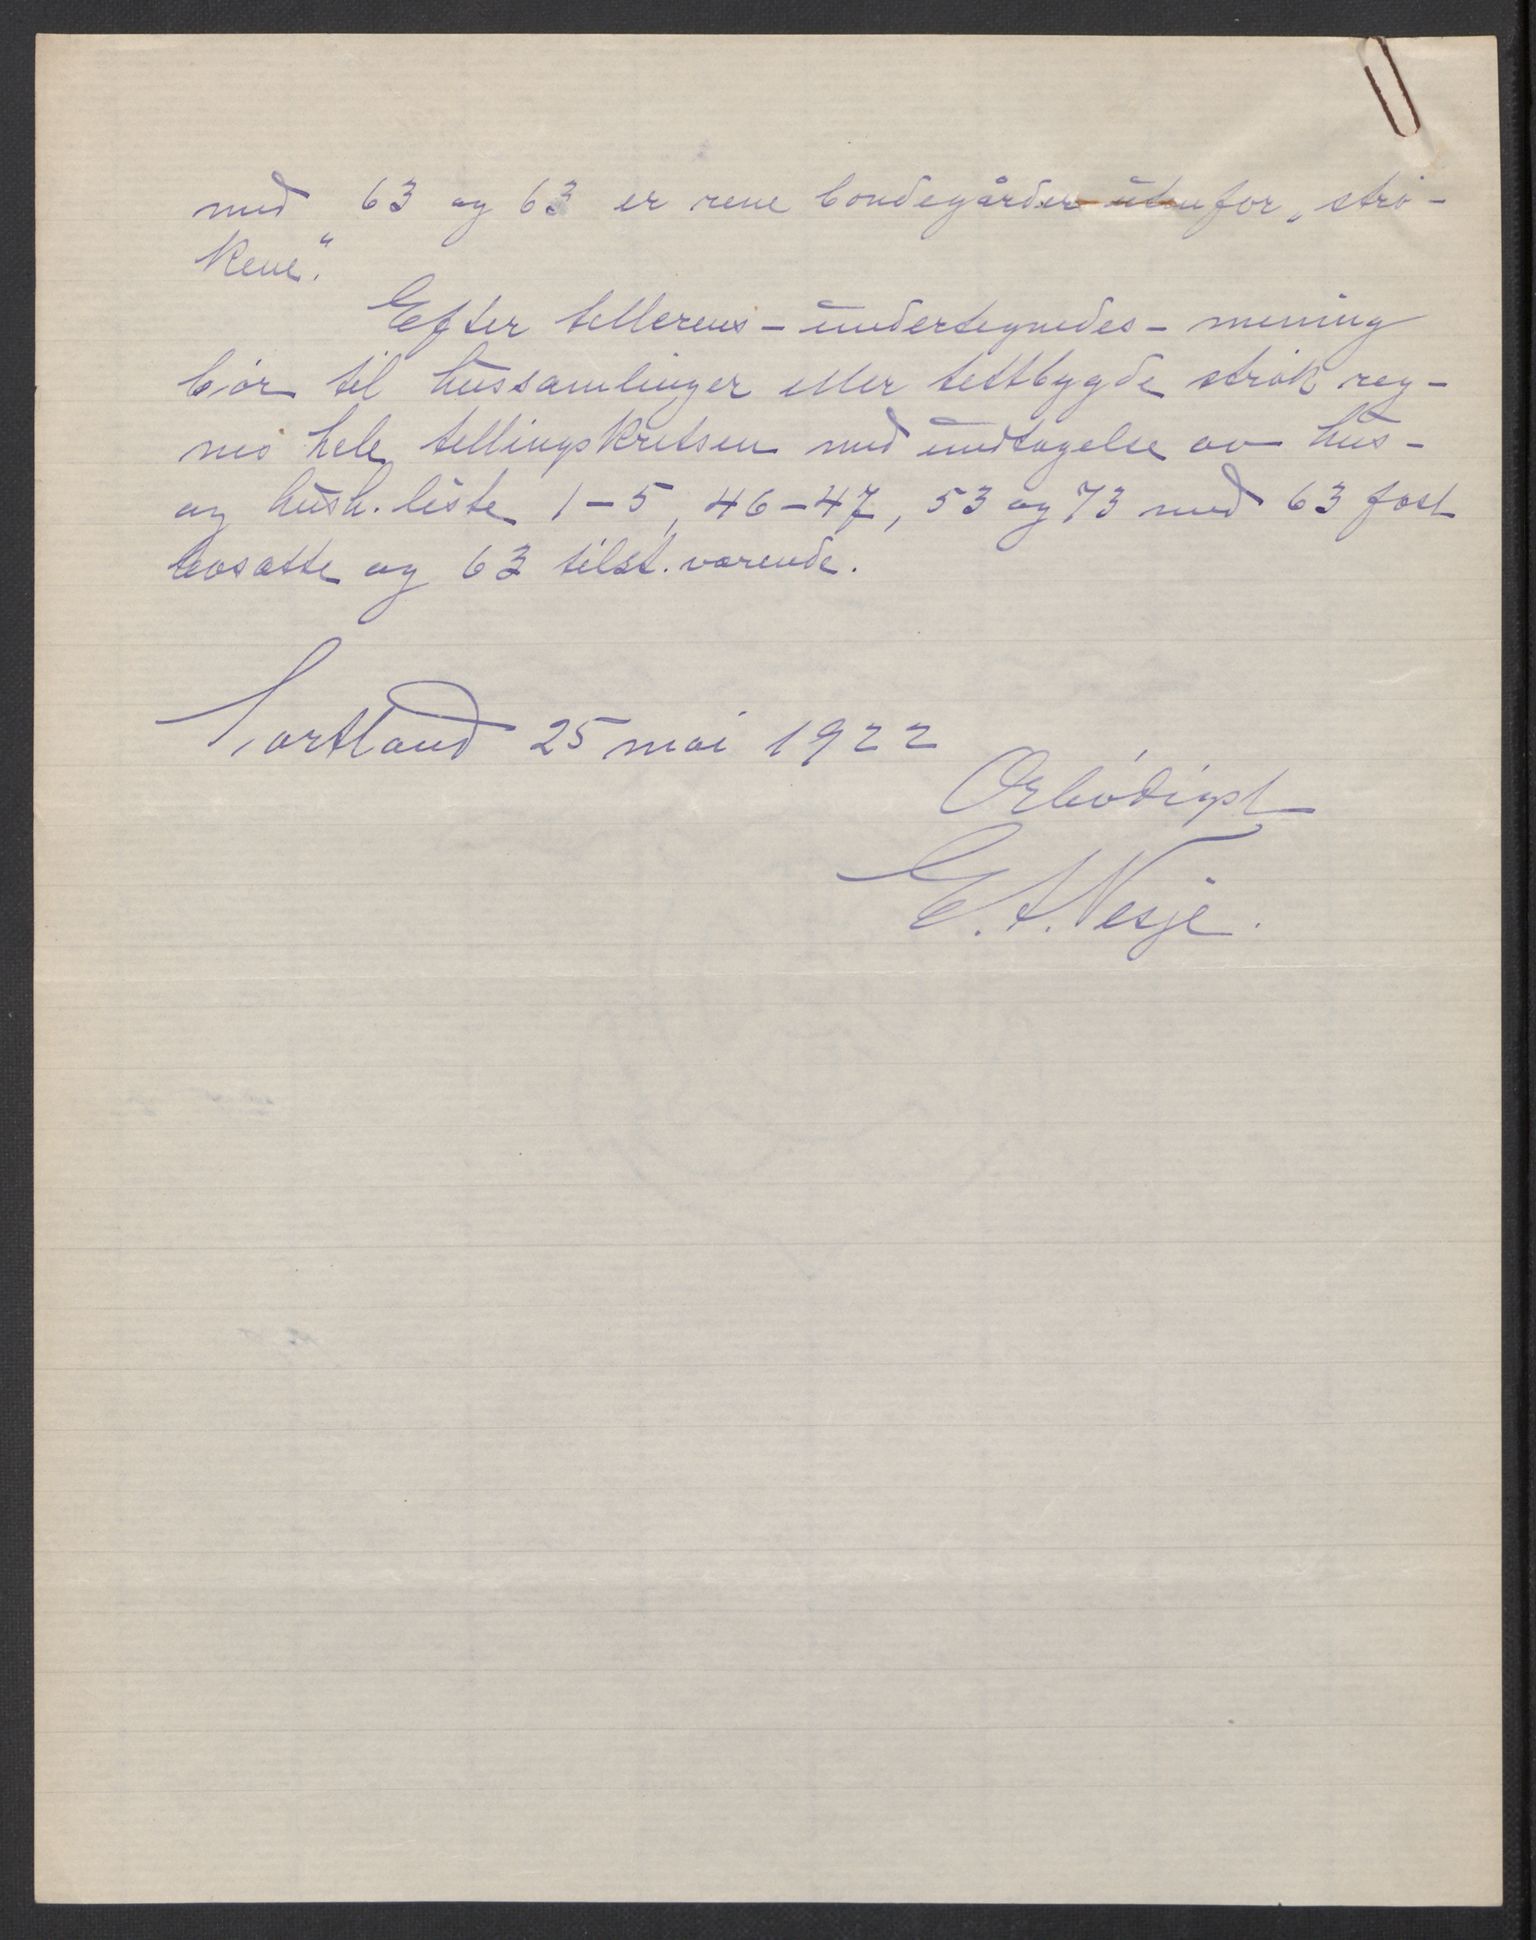 med 63 og 63 er rene bondegårder utenfor „strø-
kene".
Efter tellerens – undertegnedes – mening
bør til hussamlinger eller tettbygde strøk reg-
nes hele tellingskretsen med undtagelse av hus-
og hush. liste 1–5, 46–47, 53 og 73 med 63 fast
bosatte og 63 tilst. værende.
Sortland 25 mai 1922
Ærbødigst
E. A. Nesje.